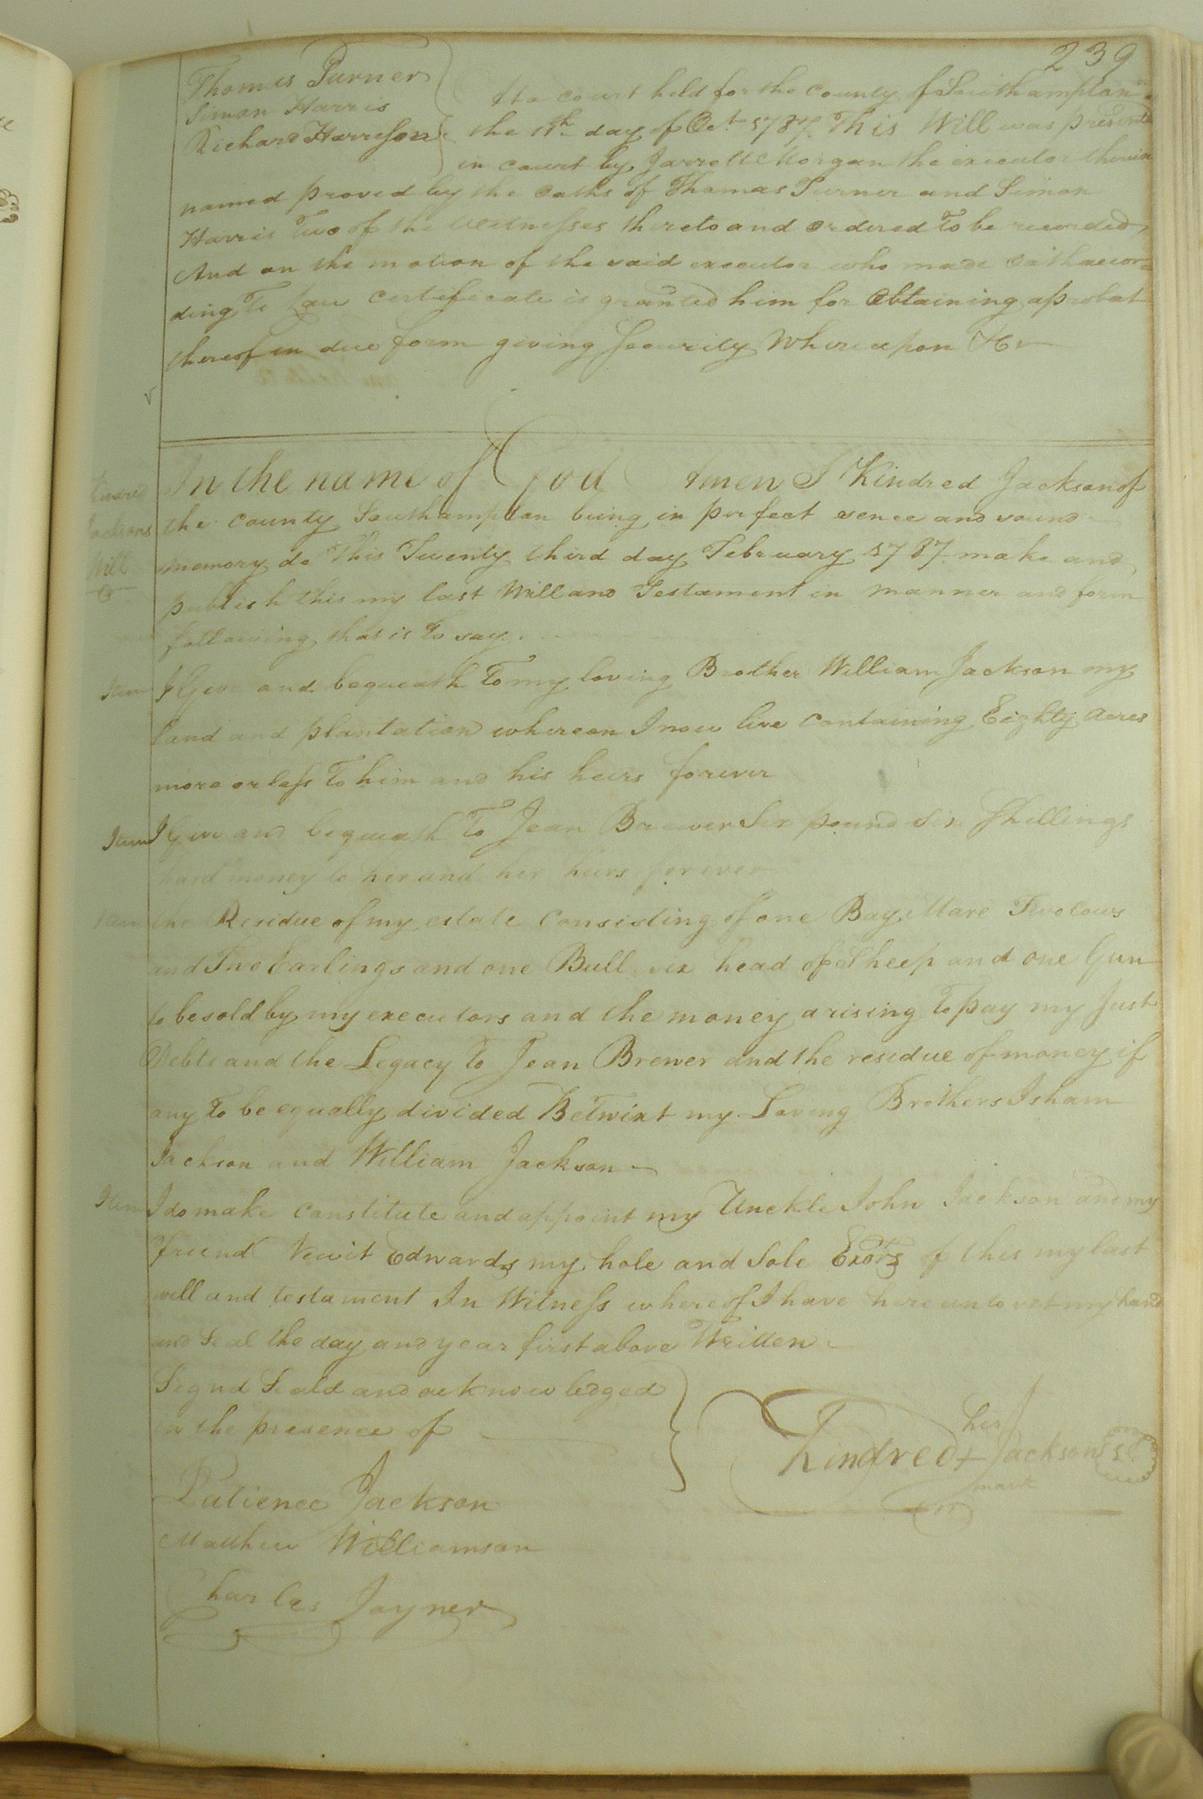 239
Thomas Turner
Simon Harris
Richard Harrison
At a court held for the county of Southampton
the 11th day of Oct 1787. This Will was presented
in court by Jarrott Morgan the executor therein
named proved by the oaths of Thomas Turner and Simon
Harris Two of the witnesses thereto and ordered To be recorded,
And on the motion of the said executor who made oath accor=
ding To Law certificate is granted him for Obtaining a probat
thereof in due form giving Security Whereupon &c
Kindred
Jacksons
Will
In the name of God Amen I Kindred Jackson of
the county Southampton being in perfect sence and sound
memory do This Twenty third day February 1787 make and
publish this my last Will and Testament in manner and form
following that is To say.
Item I Give and bequeath To my loving Brother William Jackson my
land and plantation whereon I now live containing Eighty acres
more or less To him and his heirs forever
Item I Give and bequeath To Jean Brewer Six pound Six Shillings
hard money to her and her heirs forever
Item the Residue of my estate Consisting of one Bay Mare Two cows
and Two Earlings and one Bull six head of Sheep and one Gun
to be sold by my executors and the money arising To pay my Just
Debts and the Legacy To Jean Brewer and the residue of money if
any To be equally divided Betwixt my Loving Brothers Isham
Jackson and William Jackson
Item I do make constitute and appoint my Unckle John Jackson and my
friend Newit Edwards my hole and Sole Exors of this my last
will and testament In Witness whereof I have hereunto set my hand
and Seal the day and year first above Written
Signd Seald and acknowledged
in the presence of
his
Kindred + Jackson
mark
Patience Jackson
Matthew Williamson
Charles Joyner